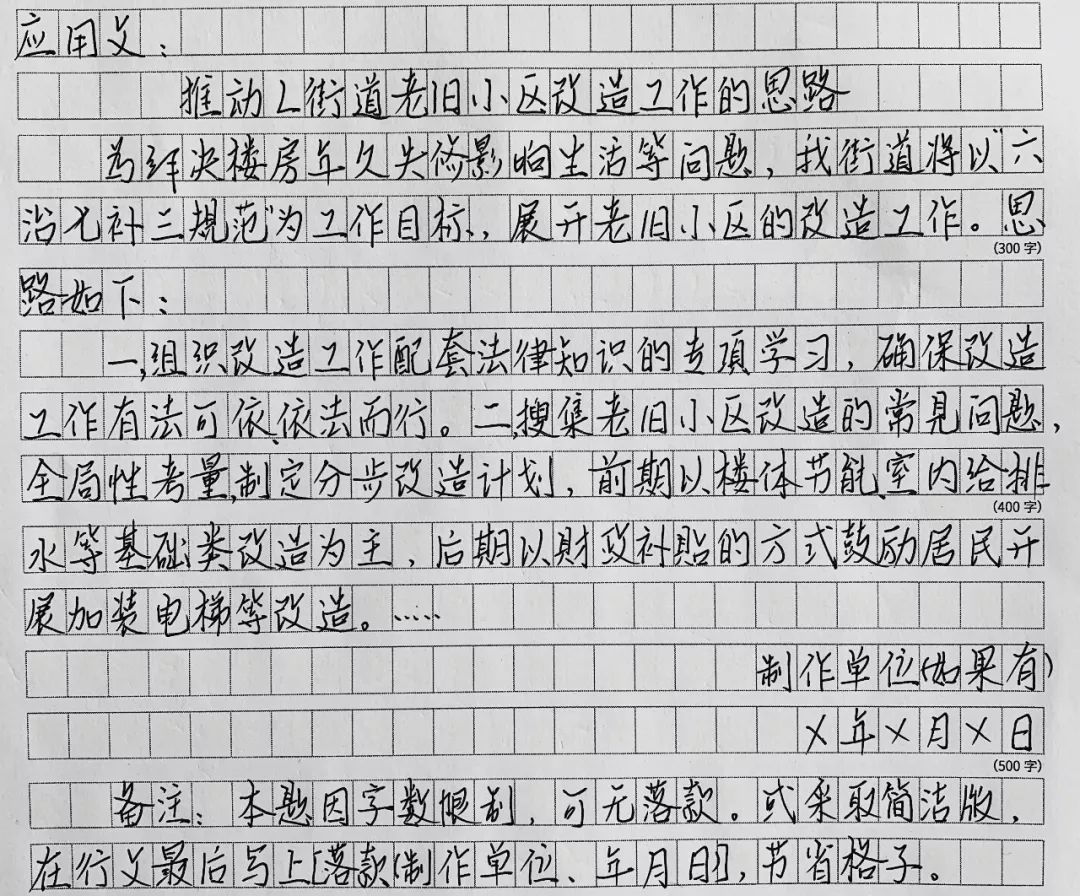 应用文：
推动L街道老旧小区改造工作的思路
为解决楼房年久失修影响生活等问题，我街道将以“六
治七补三规范”为工作目标，展开老旧小区的改造工作。思
(300字)
路如下：
一,组织改造工作配套法律知识的专项学习，确保改造
工作有法可依、依法而行。二,搜集老旧小区改造的常见问题，
全局性考量,制定分步改造计划，前期以楼体节能、室内给排
(400字)
水等基础类改造为主，后期以财政补贴的方式鼓励居民开
展加装电梯等改造。……
制作单位(如果有)
X年X月X日
(500字)
备注：本题因字数限制，可无落款。或采取简洁版，
在行文最后写上[落款(制作单位、年月日)]，节省格子。